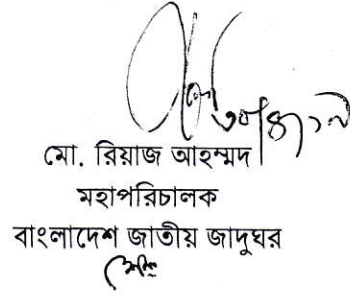 মো. রিয়াজ আহম্মদ
মহাপরিচালক
বাংলাদেশ জাতীয় জাদুঘর